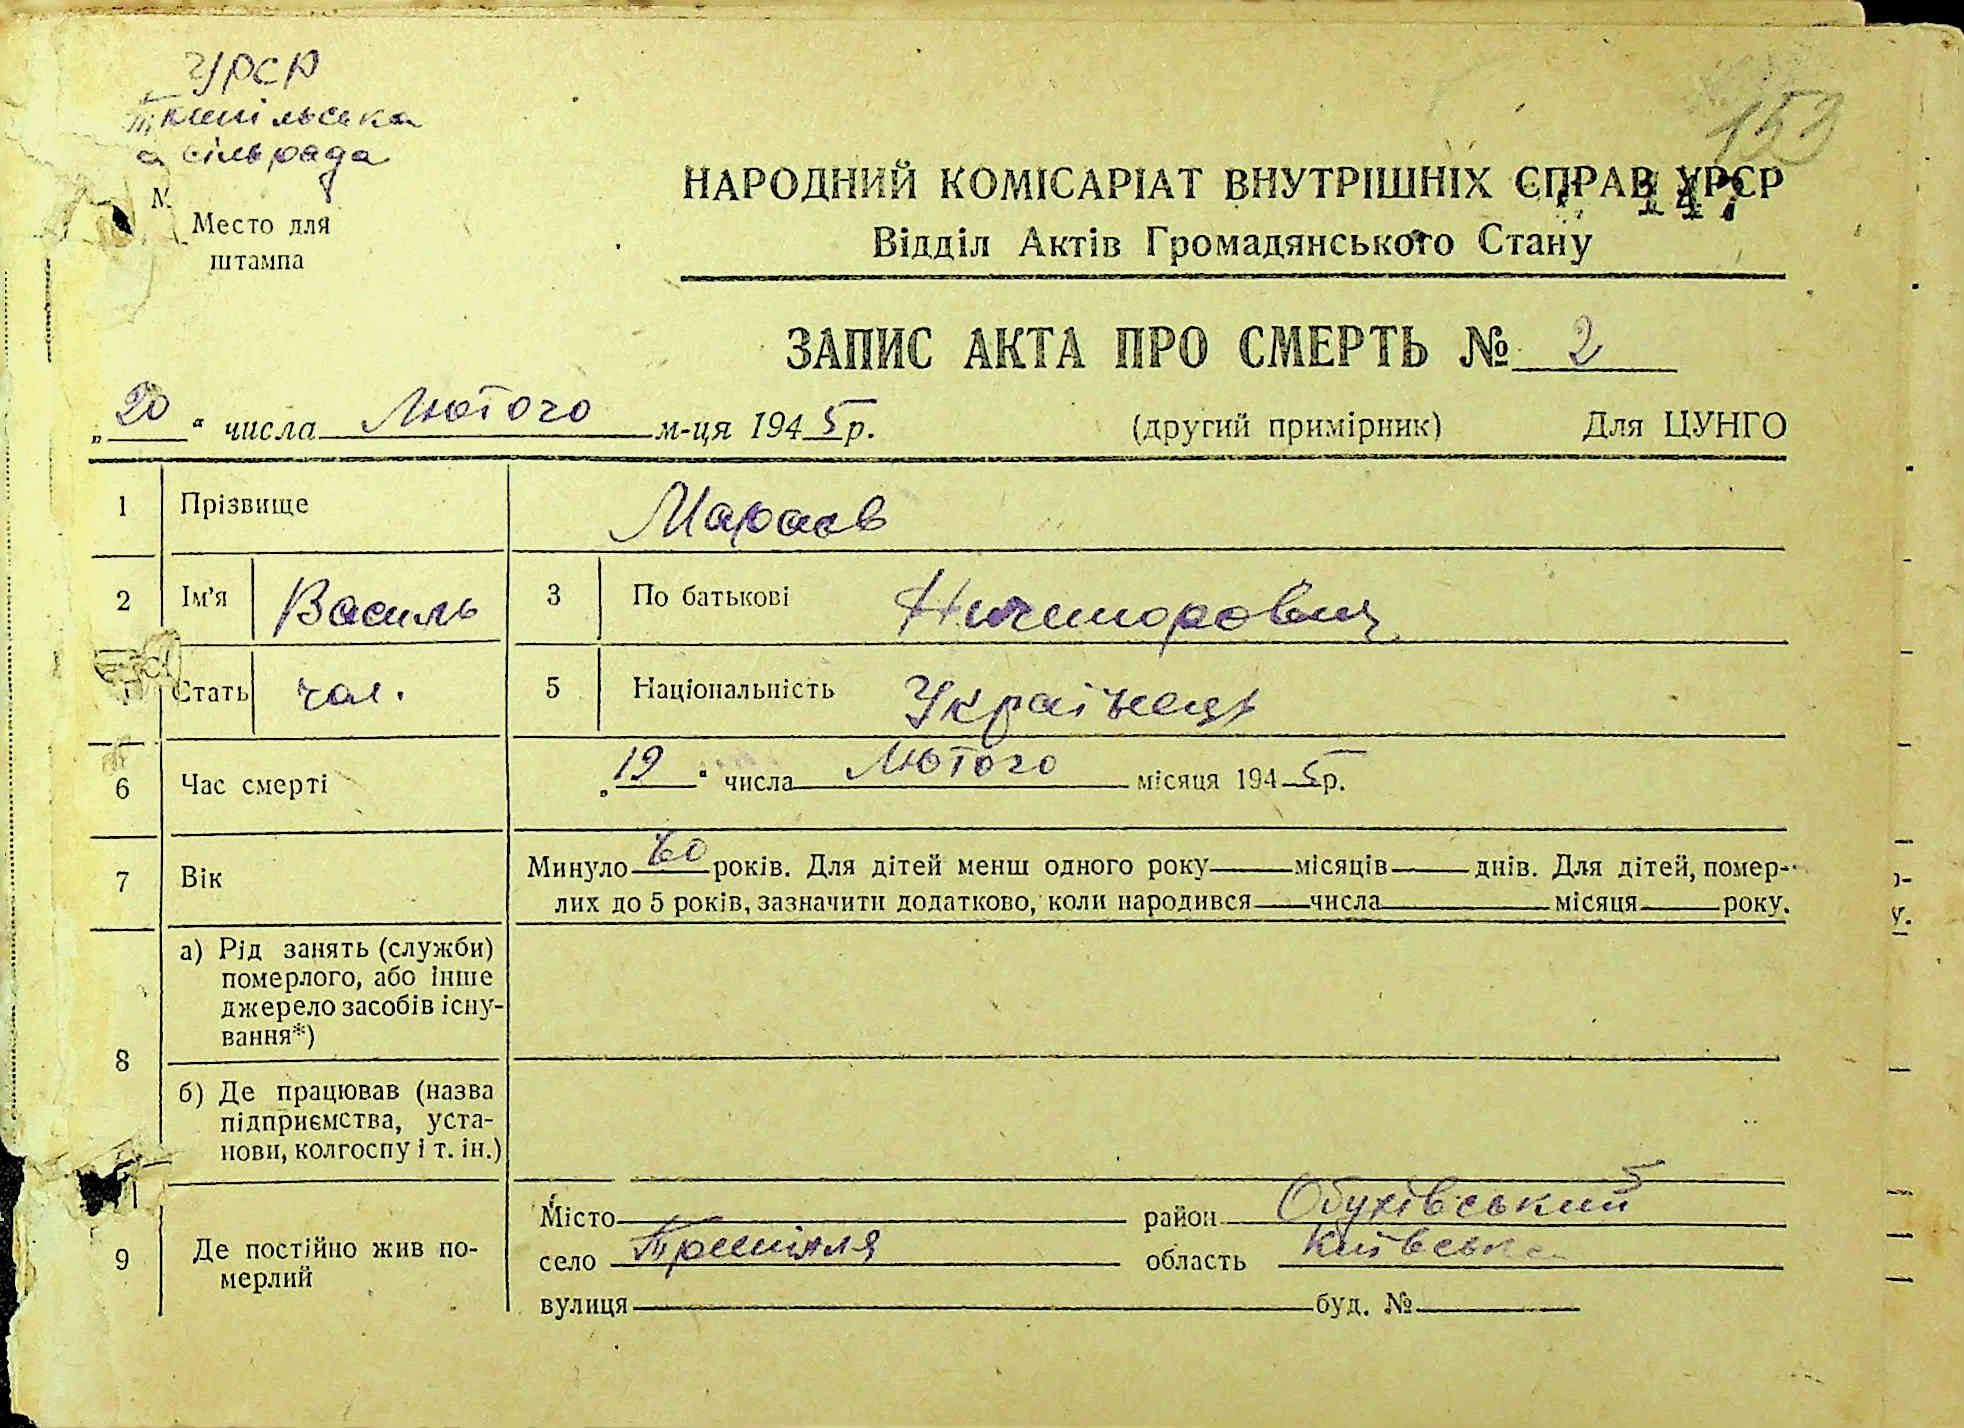 УРСР
сільрада
Место для
штампа
153
НАРОДНИЙ КОМІСАРІАТ ВНУТРІШНІХ СПРАВ УРСР
147
Відділ Актів Громадянського Стану
ЗАПИС АКТА ПРО СМЕРТЬ № 2
„20“ числа Лютого м-ця 1945 р. (другий примірник) Для ЦУНГО
1 Прізвище Мараєв
2 Ім'я Василь 3 По батькові Ничипорович
Стать чол. 5 Національність Українець
6 Час смерті „19“ числа Лютого місяця 1945 р.
7 Вік Минуло 60 років. Для дітей менш одного року місяців днів. Для дітей, помер-
лих до 5 років, зазначити додатково, коли народився числа місяця року.
8 а) Рід занять (служби)
померлого, або інше
джерело засобів існу-
вання*)
б) Де працював (назва
підприємства, уста-
нови, колгоспу і т. ін.)
9 Де постійно жив по-
мерлий
Місто район Обухівський
село Трипілля область Київська
вулиця буд. №